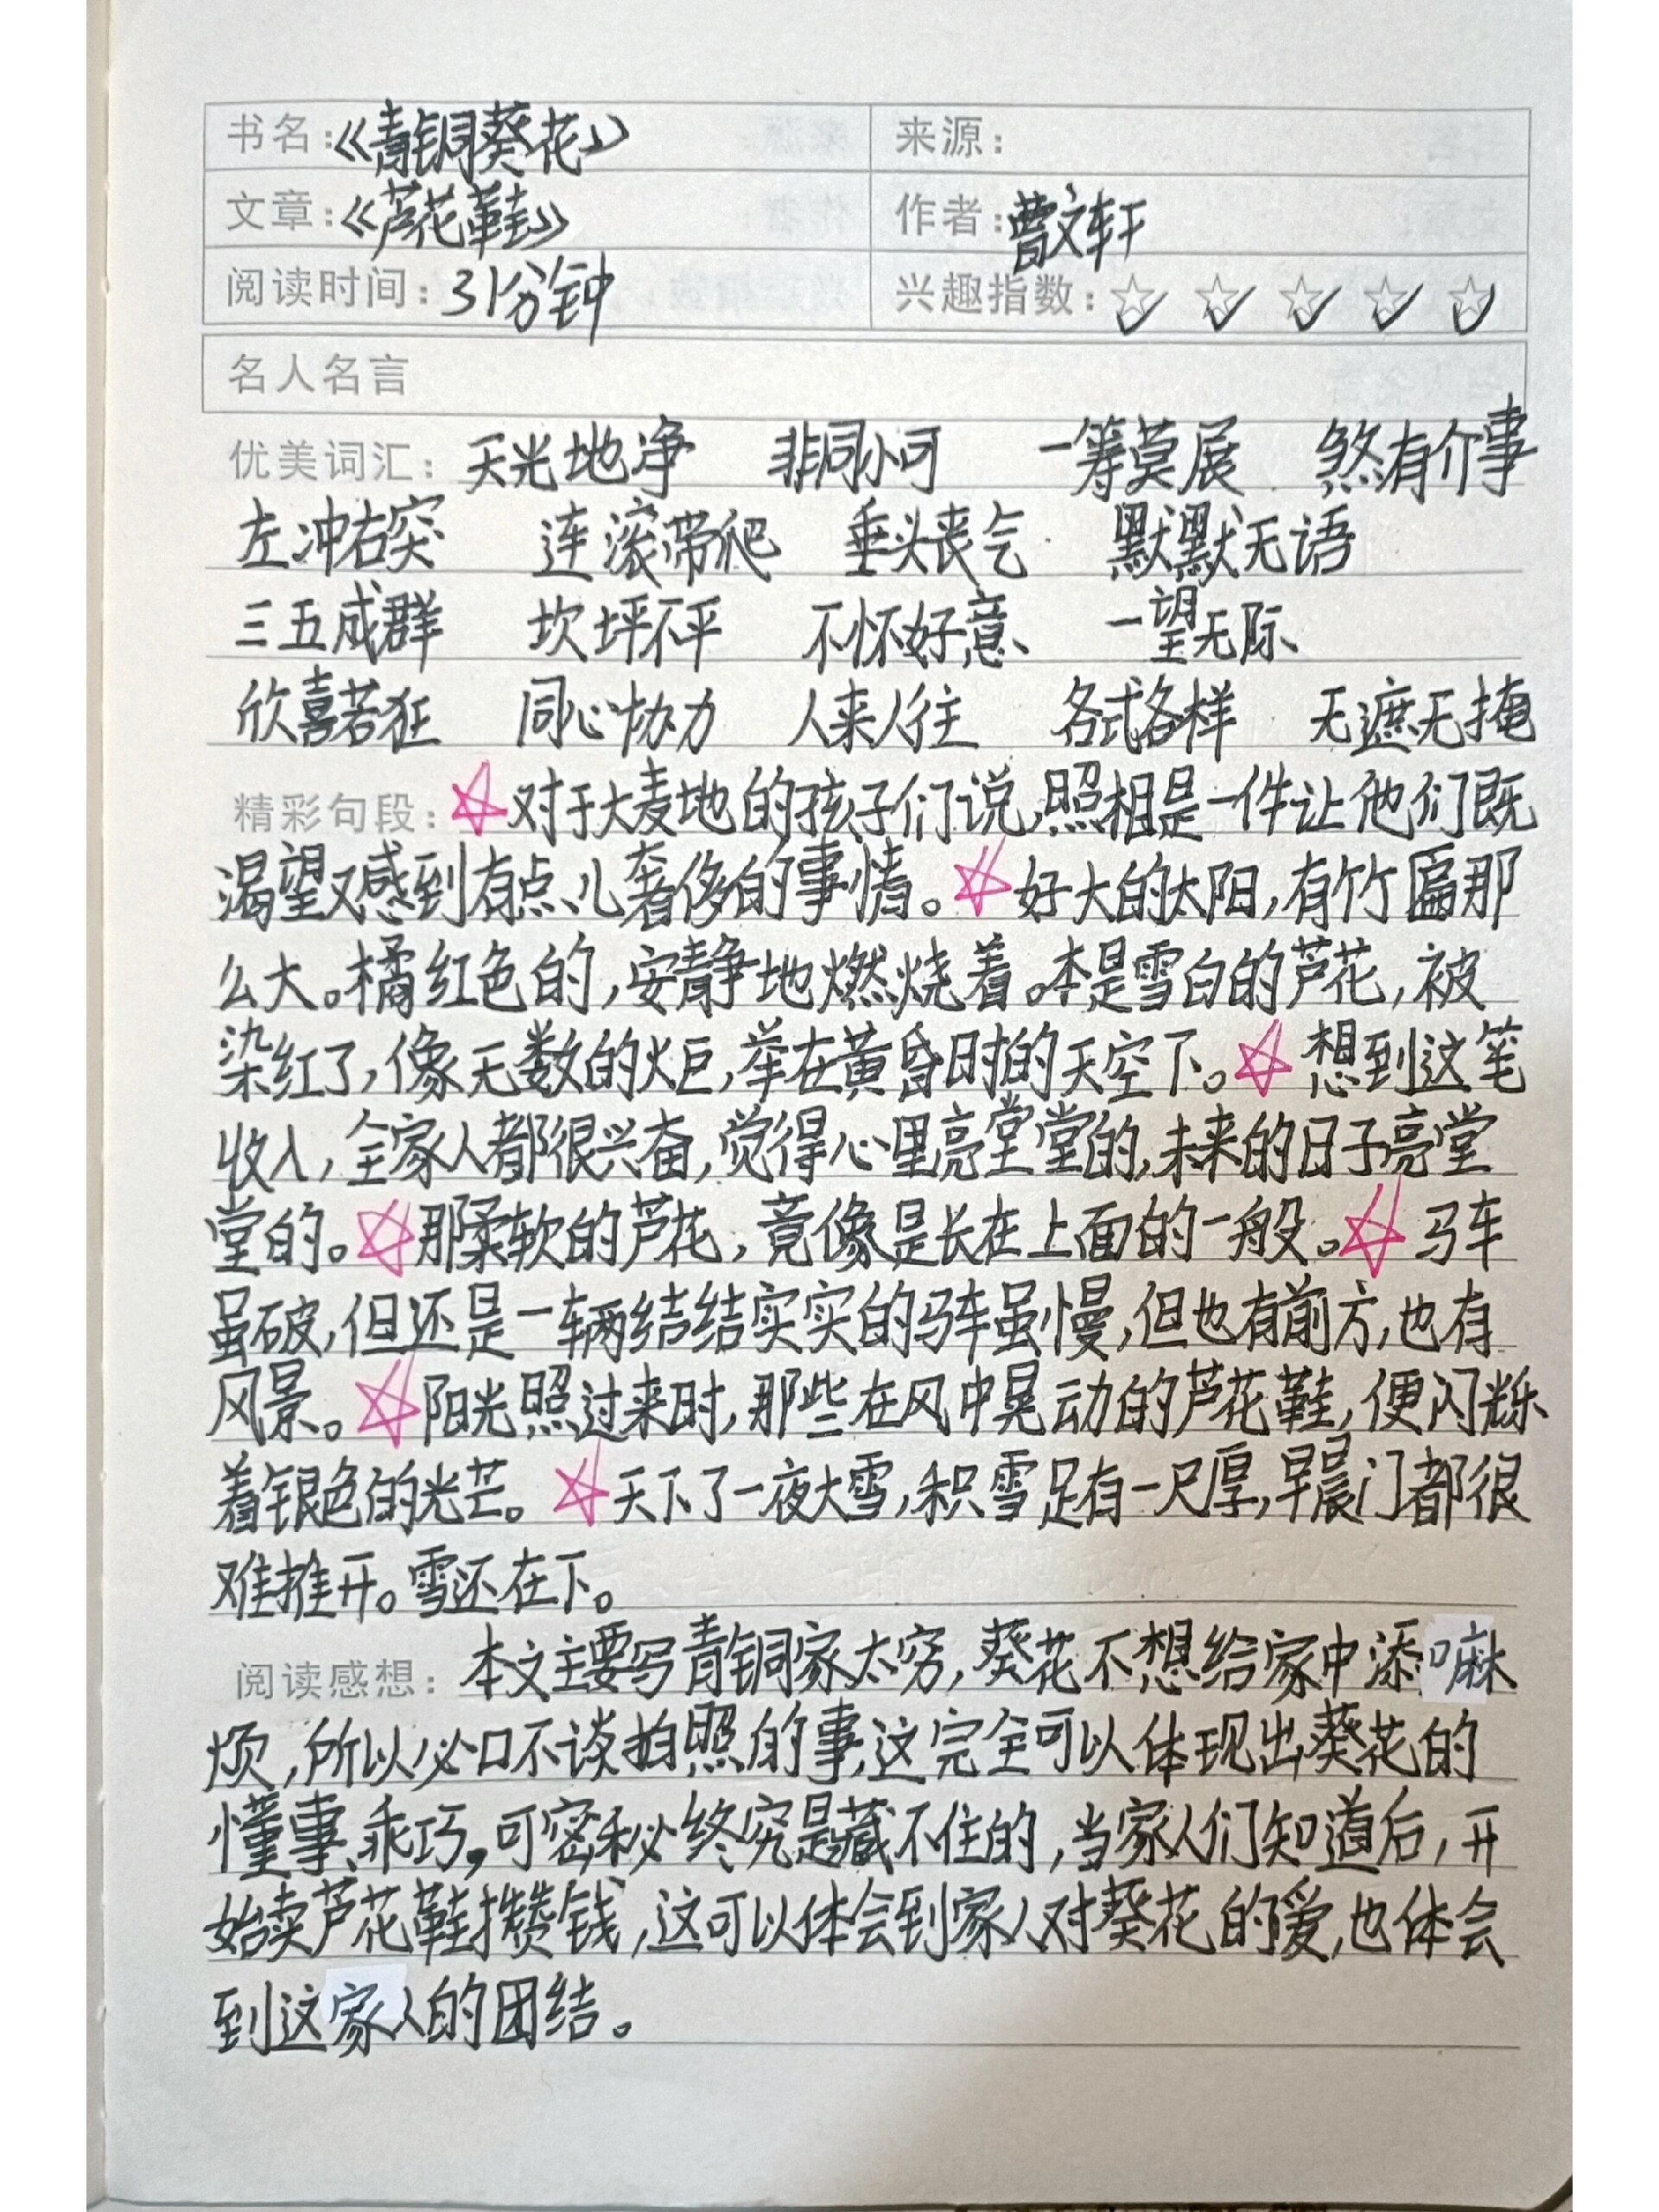 书名：《青铜葵花》 来源：
文章：《芦花鞋》 作者：曹文轩
阅读时间：31分钟 兴趣指数：
名人名言
优美词汇：天光地净 非同小可 一筹莫展 煞有介事
左冲右突 连滚带爬 垂头丧气 默默无语
三五成群 坎坪不平 不怀好意 一望无际
欣喜若狂 同心协力 人来人往 各式各样 无遮无掩
精彩句段：对于大麦地的孩子们说，照相是一件让他们既
渴望又感到有点儿奢侈的事情。好大的太阳，有竹匾那
么大。橘红色的，安静地燃烧着。本是雪白的芦花，被
染红了，像无数的火巨，举在黄昏时的天空下。想到这笔
收入，全家人都很兴奋，觉得心里亮堂堂的，未来的日子亮堂
堂的。那柔软的芦花，竟像是长在上面的一般。马车
虽破，但还是一辆结结实实的马车虽慢，但也有前方，也有
风景。阳光照过来时，那些在风中晃动的芦花鞋，便闪烁
着银色的光芒。天下了一夜大雪，积雪足有一尺厚，早晨门都很
难推开。雪还在下。
阅读感想：本文主要写青铜家太穷，葵花不想给家中添嘛
烦，所以必口不谈拍照的事，这完全可以体现出葵花的
懂事、乖巧。可密秘终究是藏不住的，当家人们知道后，开
始卖芦花鞋攒钱，这可以体会到家人对葵花的爱，也体会
到这家人的团结。